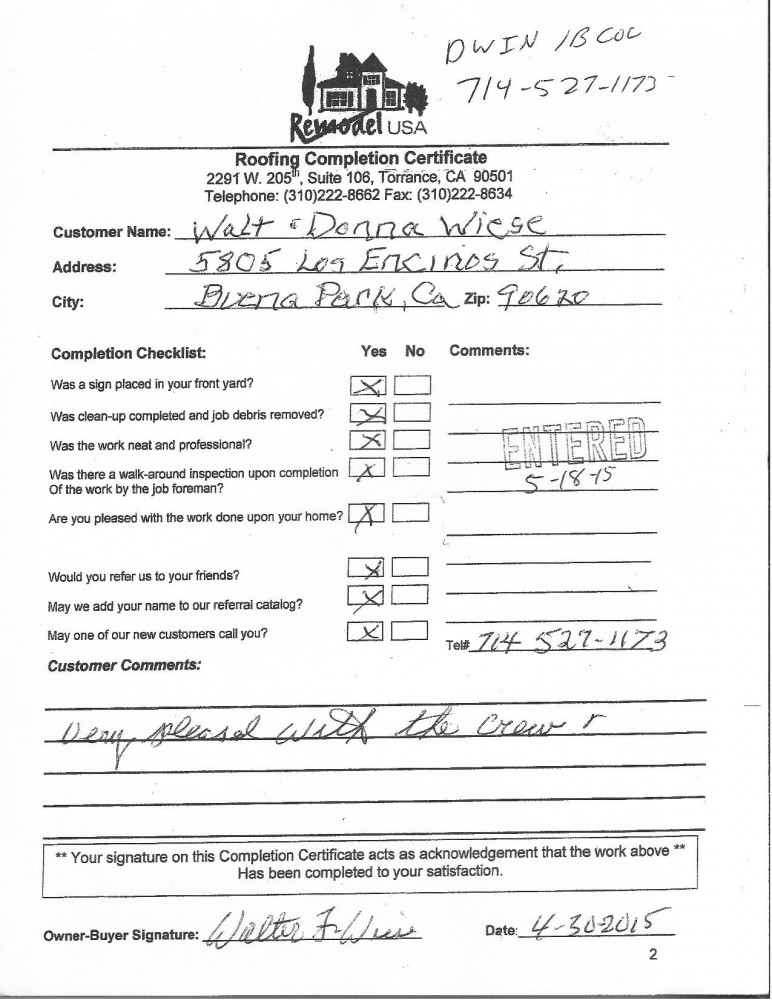 DWIN
714-527-1173
Remodel USA
Roofing Completion Certificate
2291 W. 205th, Suite 106, Torrance, CA 90501
Telephone: (310)222-8662 Fax: (310)222-8634
Customer Name: Walt & Donna Wiese
Address: 5805 Los Encinos St,
City: Buena Park, Ca Zip: 90620
Completion Checklist: Yes No Comments:
Was a sign placed in your front yard? X
Was clean-up completed and job debris removed? X
Was the work neat and professional? X
ENTERED
Was there a walk-around inspection upon completion X
5-18-15
Of the work by the job foreman?
Are you pleased with the work done upon your home? X
Would you refer us to your friends? X
May we add your name to our referral catalog? X
May one of our new customers call you? X
Tel# 714 527-1173
Customer Comments:
Very pleased with the crew
** Your signature on this Completion Certificate acts as acknowledgement that the work above **
Has been completed to your satisfaction.
Owner-Buyer Signature: Walter F Wiese Date: 4-30-2015
2